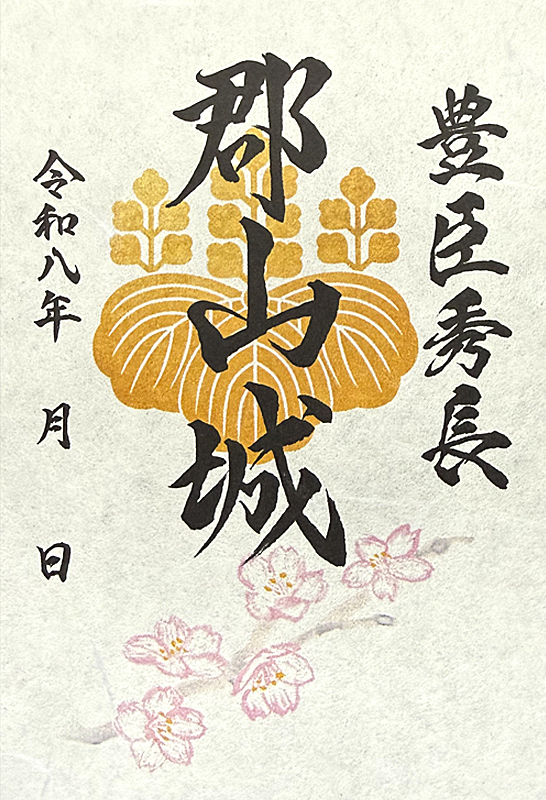 豊臣秀長
郡山城
令和八年　月　日